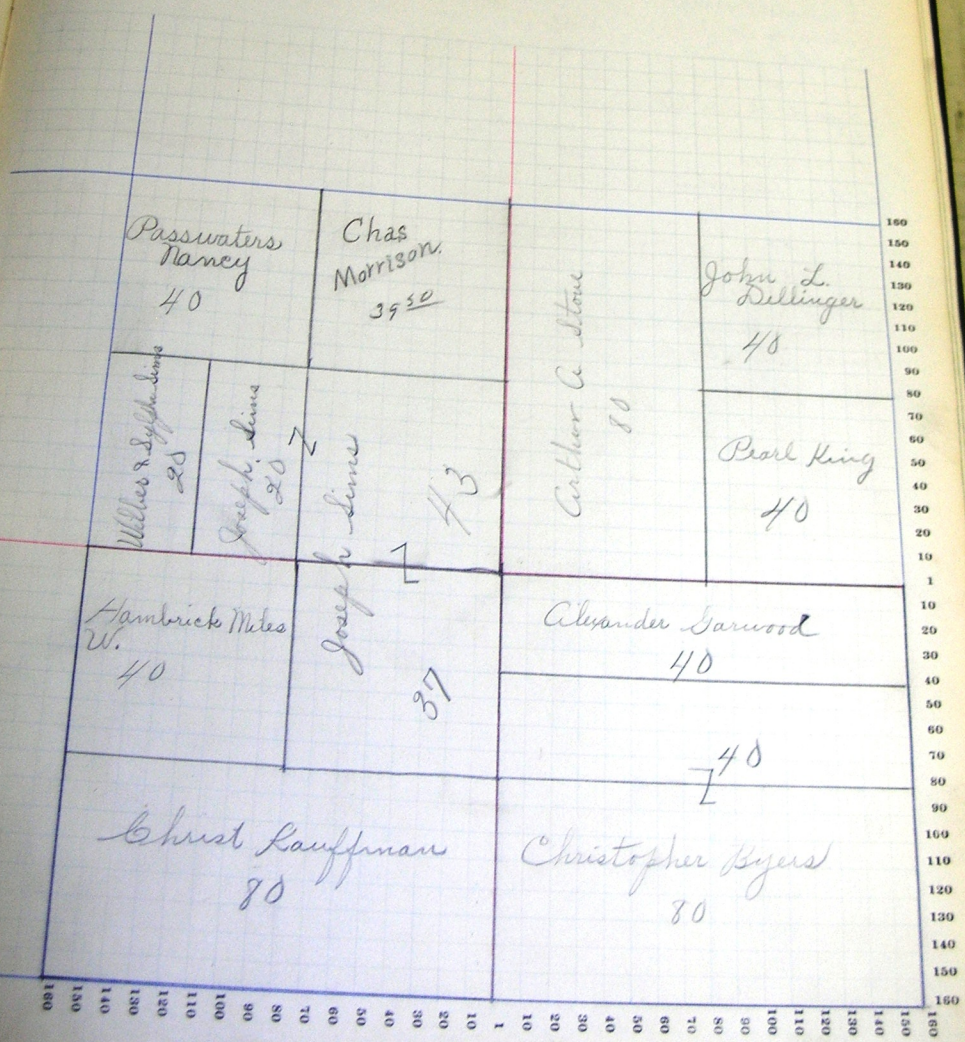 Passwaters
Nancy
40
Chas
Morrison.
39 50
Arthur A Stone
80
John L.
Dellinger
40
Pearl King
40
Wilber & Sylpha Sims
20
Joseph Sims
20
Joseph Sims
43
37
Hambrick Miles
W.
40
Alexander Garwood
40
40
Christ Kauffman
80
Christopher Byers
80
160
150
140
130
120
110
100
90
80
70
60
50
40
30
20
10
1
10
20
30
40
50
60
70
80
90
100
110
120
130
140
150
160
160 150 140 130 120 110 100 90 80 70 60 50 40 30 20 10 1 10 20 30 40 50 60 70 80 90 100 110 120 130 140 150 160